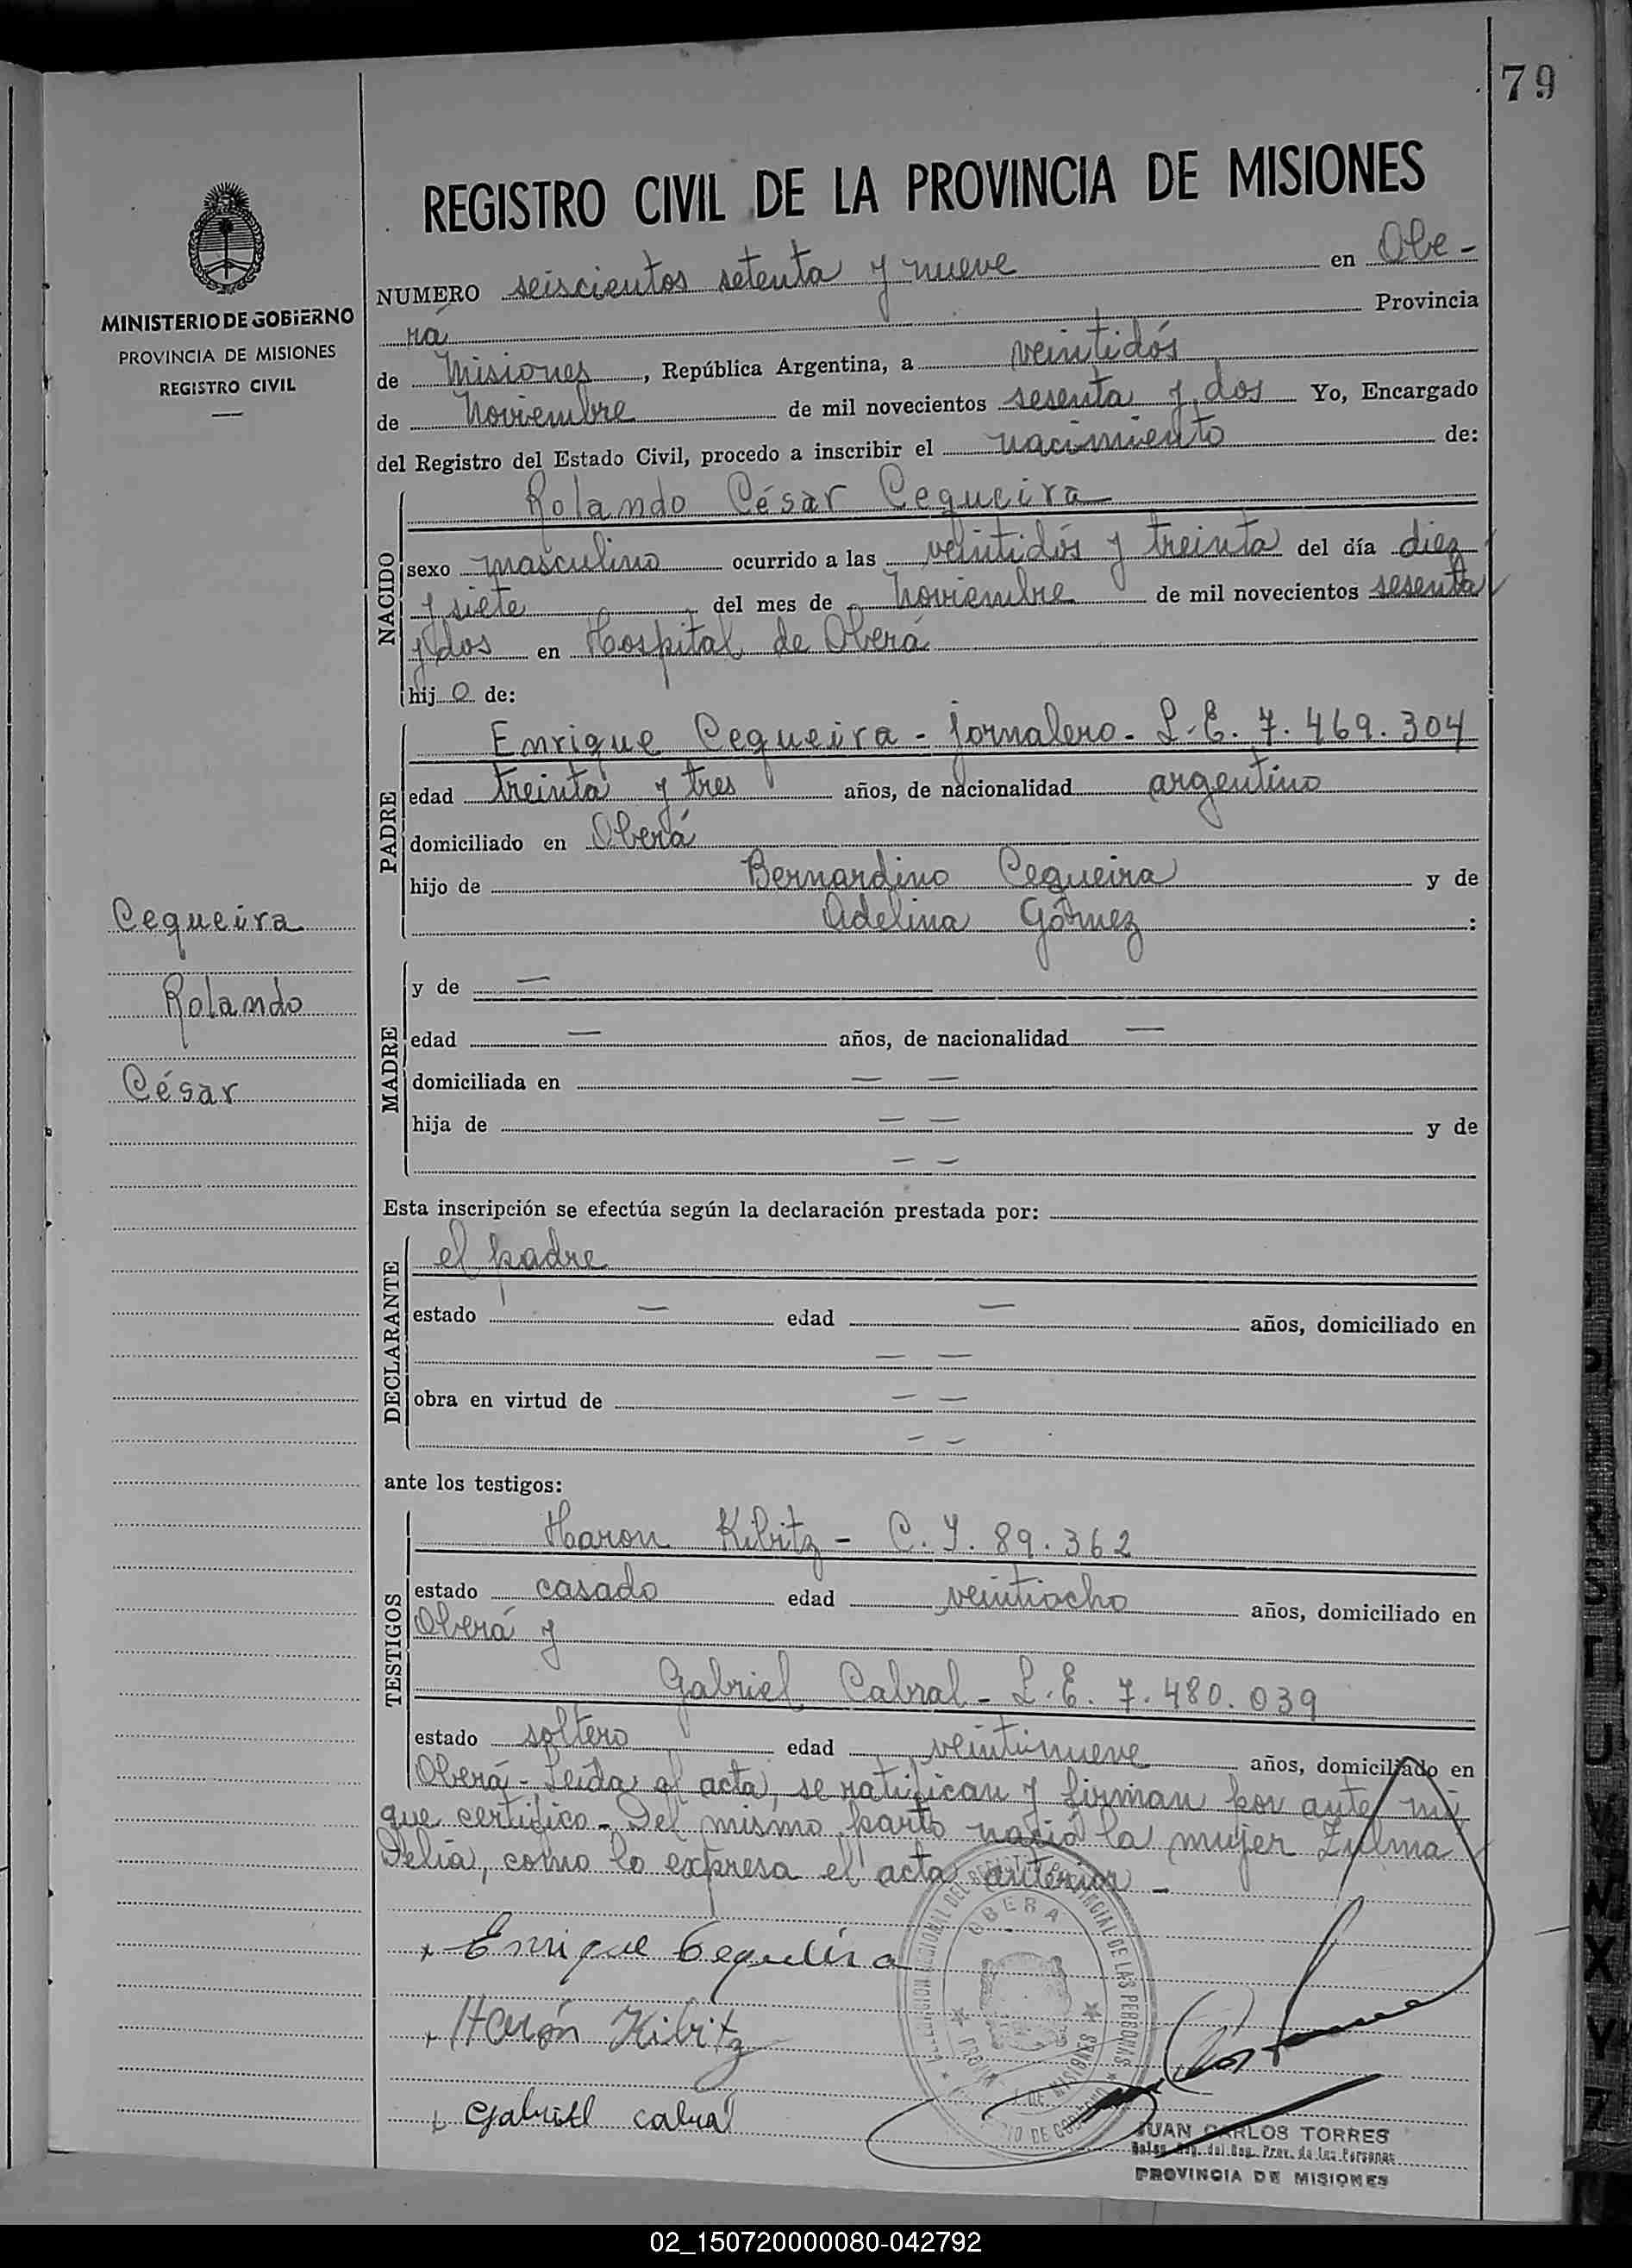 79
REGISTRO CIVIL DE LA PROVINCIA DE MISIONES
MINISTERIO DE GOBIERNO
PROVINCIA DE MISIONES
REGISTRO CIVIL
NUMERO seiscientos setenta y nueve en Obe-
rá Provincia
de Misiones, República Argentina, a veintidós
de Noviembre de mil novecientos sesenta y dos Yo, Encargado
del Registro del Estado Civil, procedo a inscribir el nacimiento de:
NACIDO
Rolando César Cequeira
sexo masculino ocurrido a las veintidós y treinta del día diez
y siete del mes de Noviembre de mil novecientos sesenta
y dos en Hospital de Oberá
hij o de:
PADRE
Enrique Cequeira - jornalero - L.E. 7.469.304
edad treinta y tres años, de nacionalidad argentino
domiciliado en Oberá
hijo de Bernardino Cequeira y de
Adelina Gómez :
Cequeira
Rolando
César
MADRE
y de —
edad — años, de nacionalidad —
domiciliada en — —
hija de — — y de
— —
Esta inscripción se efectúa según la declaración prestada por:
DECLARANTE
el padre
estado — edad — años, domiciliado en
— —
obra en virtud de — —
— —
ante los testigos:
TESTIGOS
Haron Kibitz - C.I. 89.362
estado casado edad veintiocho años, domiciliado en
Oberá y
Gabriel Cabral - L.E. 7.480.039
estado soltero edad veintinueve años, domiciliado en
Oberá - Leída el acta, se ratifican y firman por ante mí
que certifico - Del mismo parto nació la mujer Zulma
Delia, como lo expresa el acta anterior -
x Enrique Cequeira
x Harón Kibitz
x Gabriel Cabral
OBERA
JUAN CARLOS TORRES
Deleg. Reg. del Reg. Prov. de las Personas
PROVINCIA DE MISIONES
02_150720000080-042792